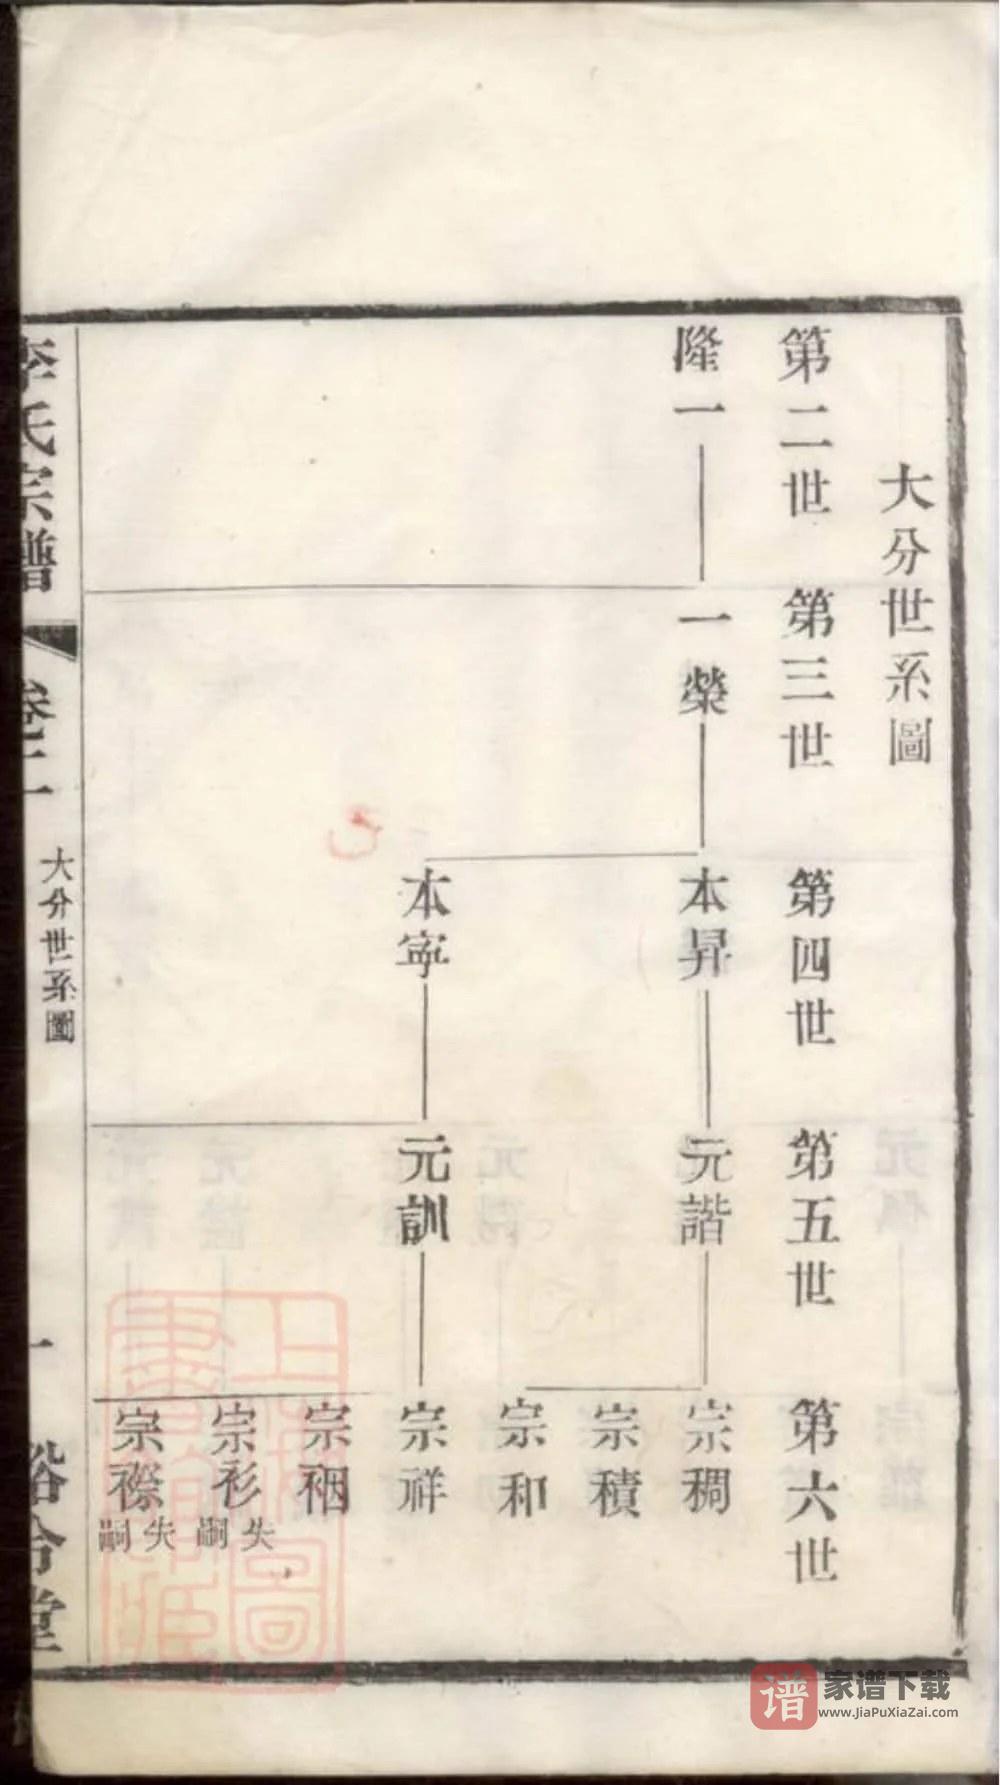 大分世系圖
第二世
第三世
第四世
第五世
第六世
隆一
一榮
本昇
元諧
宗稠
宗積
宗和
本寧
元訓
宗祥
宗裀
宗衫
失嗣
宗襟
失嗣
李氏宗譜
卷二
大分世系圖
一
裕合堂
上海圖書館藏
谱
家谱下载
www.JiaPuXiaZai.com